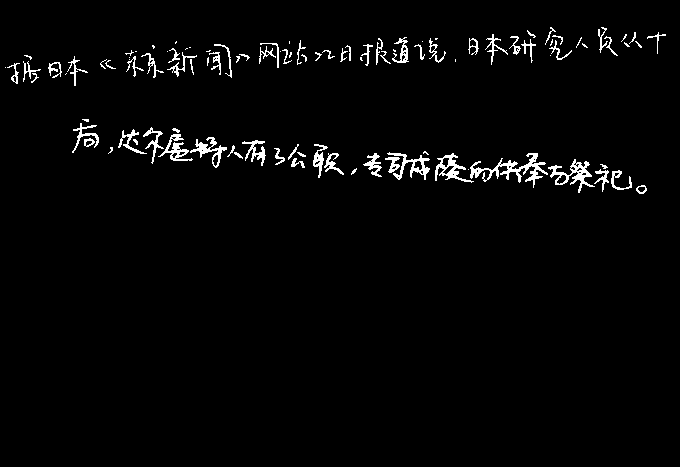 据日本《东京新闻》网站22日报道说，日本研究人员从十
后，达尔扈特人有了公职，专司成陵的供奉与祭祀。